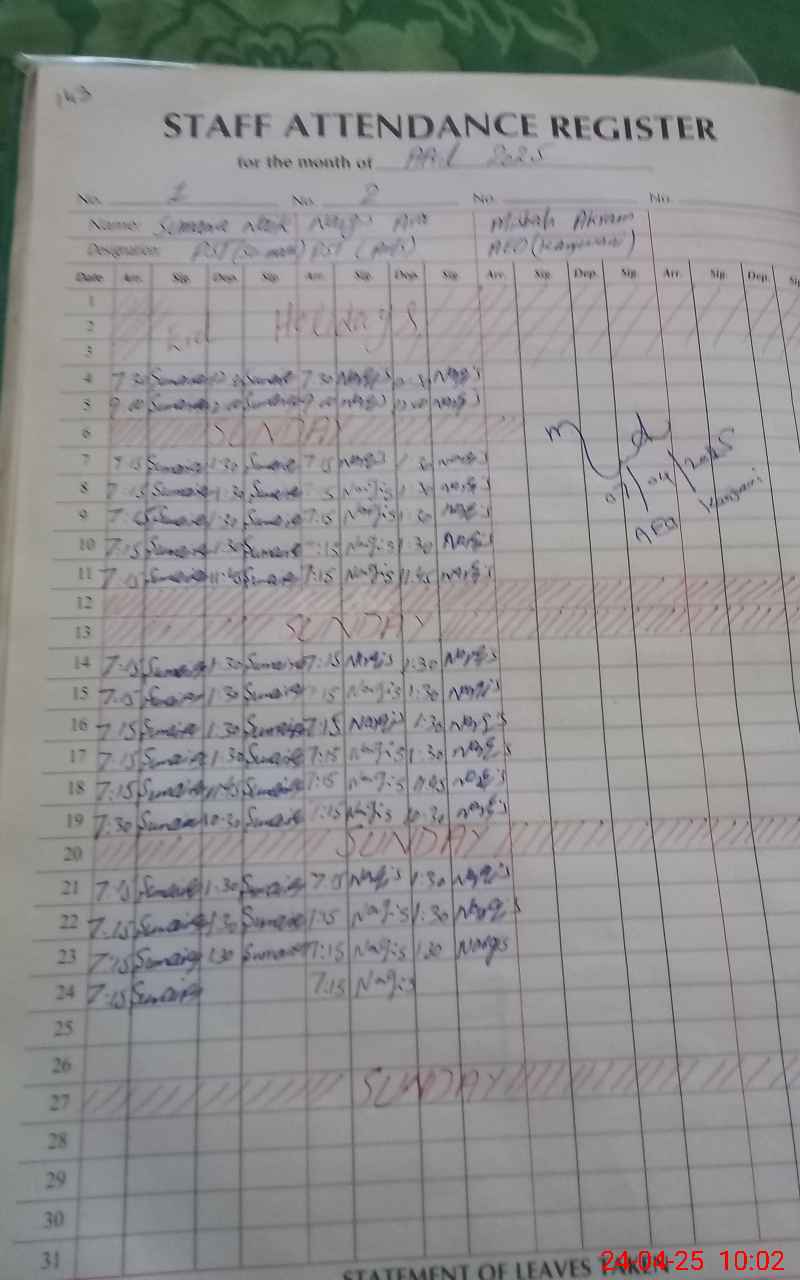 143
STAFF ATTENDANCE REGISTER
for the month of April 2025
No. 1 No. 2 No. No.
Name: Nargis Ara Misbah Akram
Designation: PST PST (Arts) AEO
Date Arr. Sig. Dep. Sig. Arr. Sig. Dep. Sig. Arr. Sig. Dep. Sig. Arr. Sig. Dep.
1
2 Eid Holidays
3
4 7:30 Sumaira Sumaira 7:30 Nargis Nargis
5 9:00 Sumaira Sumaira 9:00 Nargis Nargis
6 SUNDAY
7 7:15 Sumaira 1:30 Sumaira 7:15 Nargis 1:30 Nargis
8 7:15 Sumaira 1:30 Sumaira Nargis 1:30 Nargis
9 7:15 Sumaira 1:30 Sumaira 7:15 Nargis 1:30 Nargis
10 7:15 Sumaira 1:30 Sumaira 7:15 Nargis 1:30 Nargis
11 7:15 Sumaira 11:45 Sumaira 7:15 Nargis 11:45 Nargis
12
13 SUNDAY
14 7:15 Sumaira 1:30 Sumaira 7:15 Nargis 1:30 Nargis
15 7:15 Sumaira 1:30 Sumaira 7:15 Nargis 1:30 Nargis
16 7:15 Sumaira 1:30 Sumaira 7:15 Nargis 1:30 Nargis
17 7:15 Sumaira 1:30 Sumaira 7:15 Nargis 1:30 Nargis
18 7:15 Sumaira 11:45 Sumaira 7:15 Nargis 11:45 Nargis
19 7:30 Sumaira 10:30 Sumaira Nargis 10:30 Nargis
20 SUNDAY
21 7:15 Sumaira 1:30 Sumaira 7:15 Nargis 1:30 Nargis
22 7:15 Sumaira 1:30 Sumaira 7:15 Nargis 1:30 Nargis
23 7:15 Sumaira 1:30 Sumaira 7:15 Nargis 1:30 Nargis
24 7:15 Sumaira 7:15 Nargis
25
26
27 SUNDAY
28
29
30
31
STATEMENT OF LEAVES TAKEN
04/2025
AEO
24-04-25 10:02